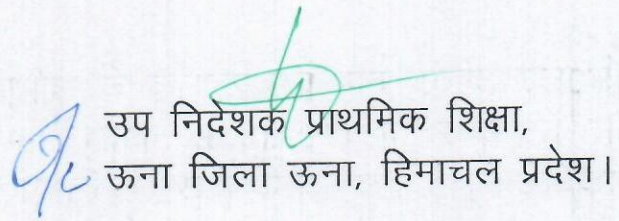 उप निदेशक प्राथमिक शिक्षा,
ऊना जिला ऊना, हिमाचल प्रदेश।